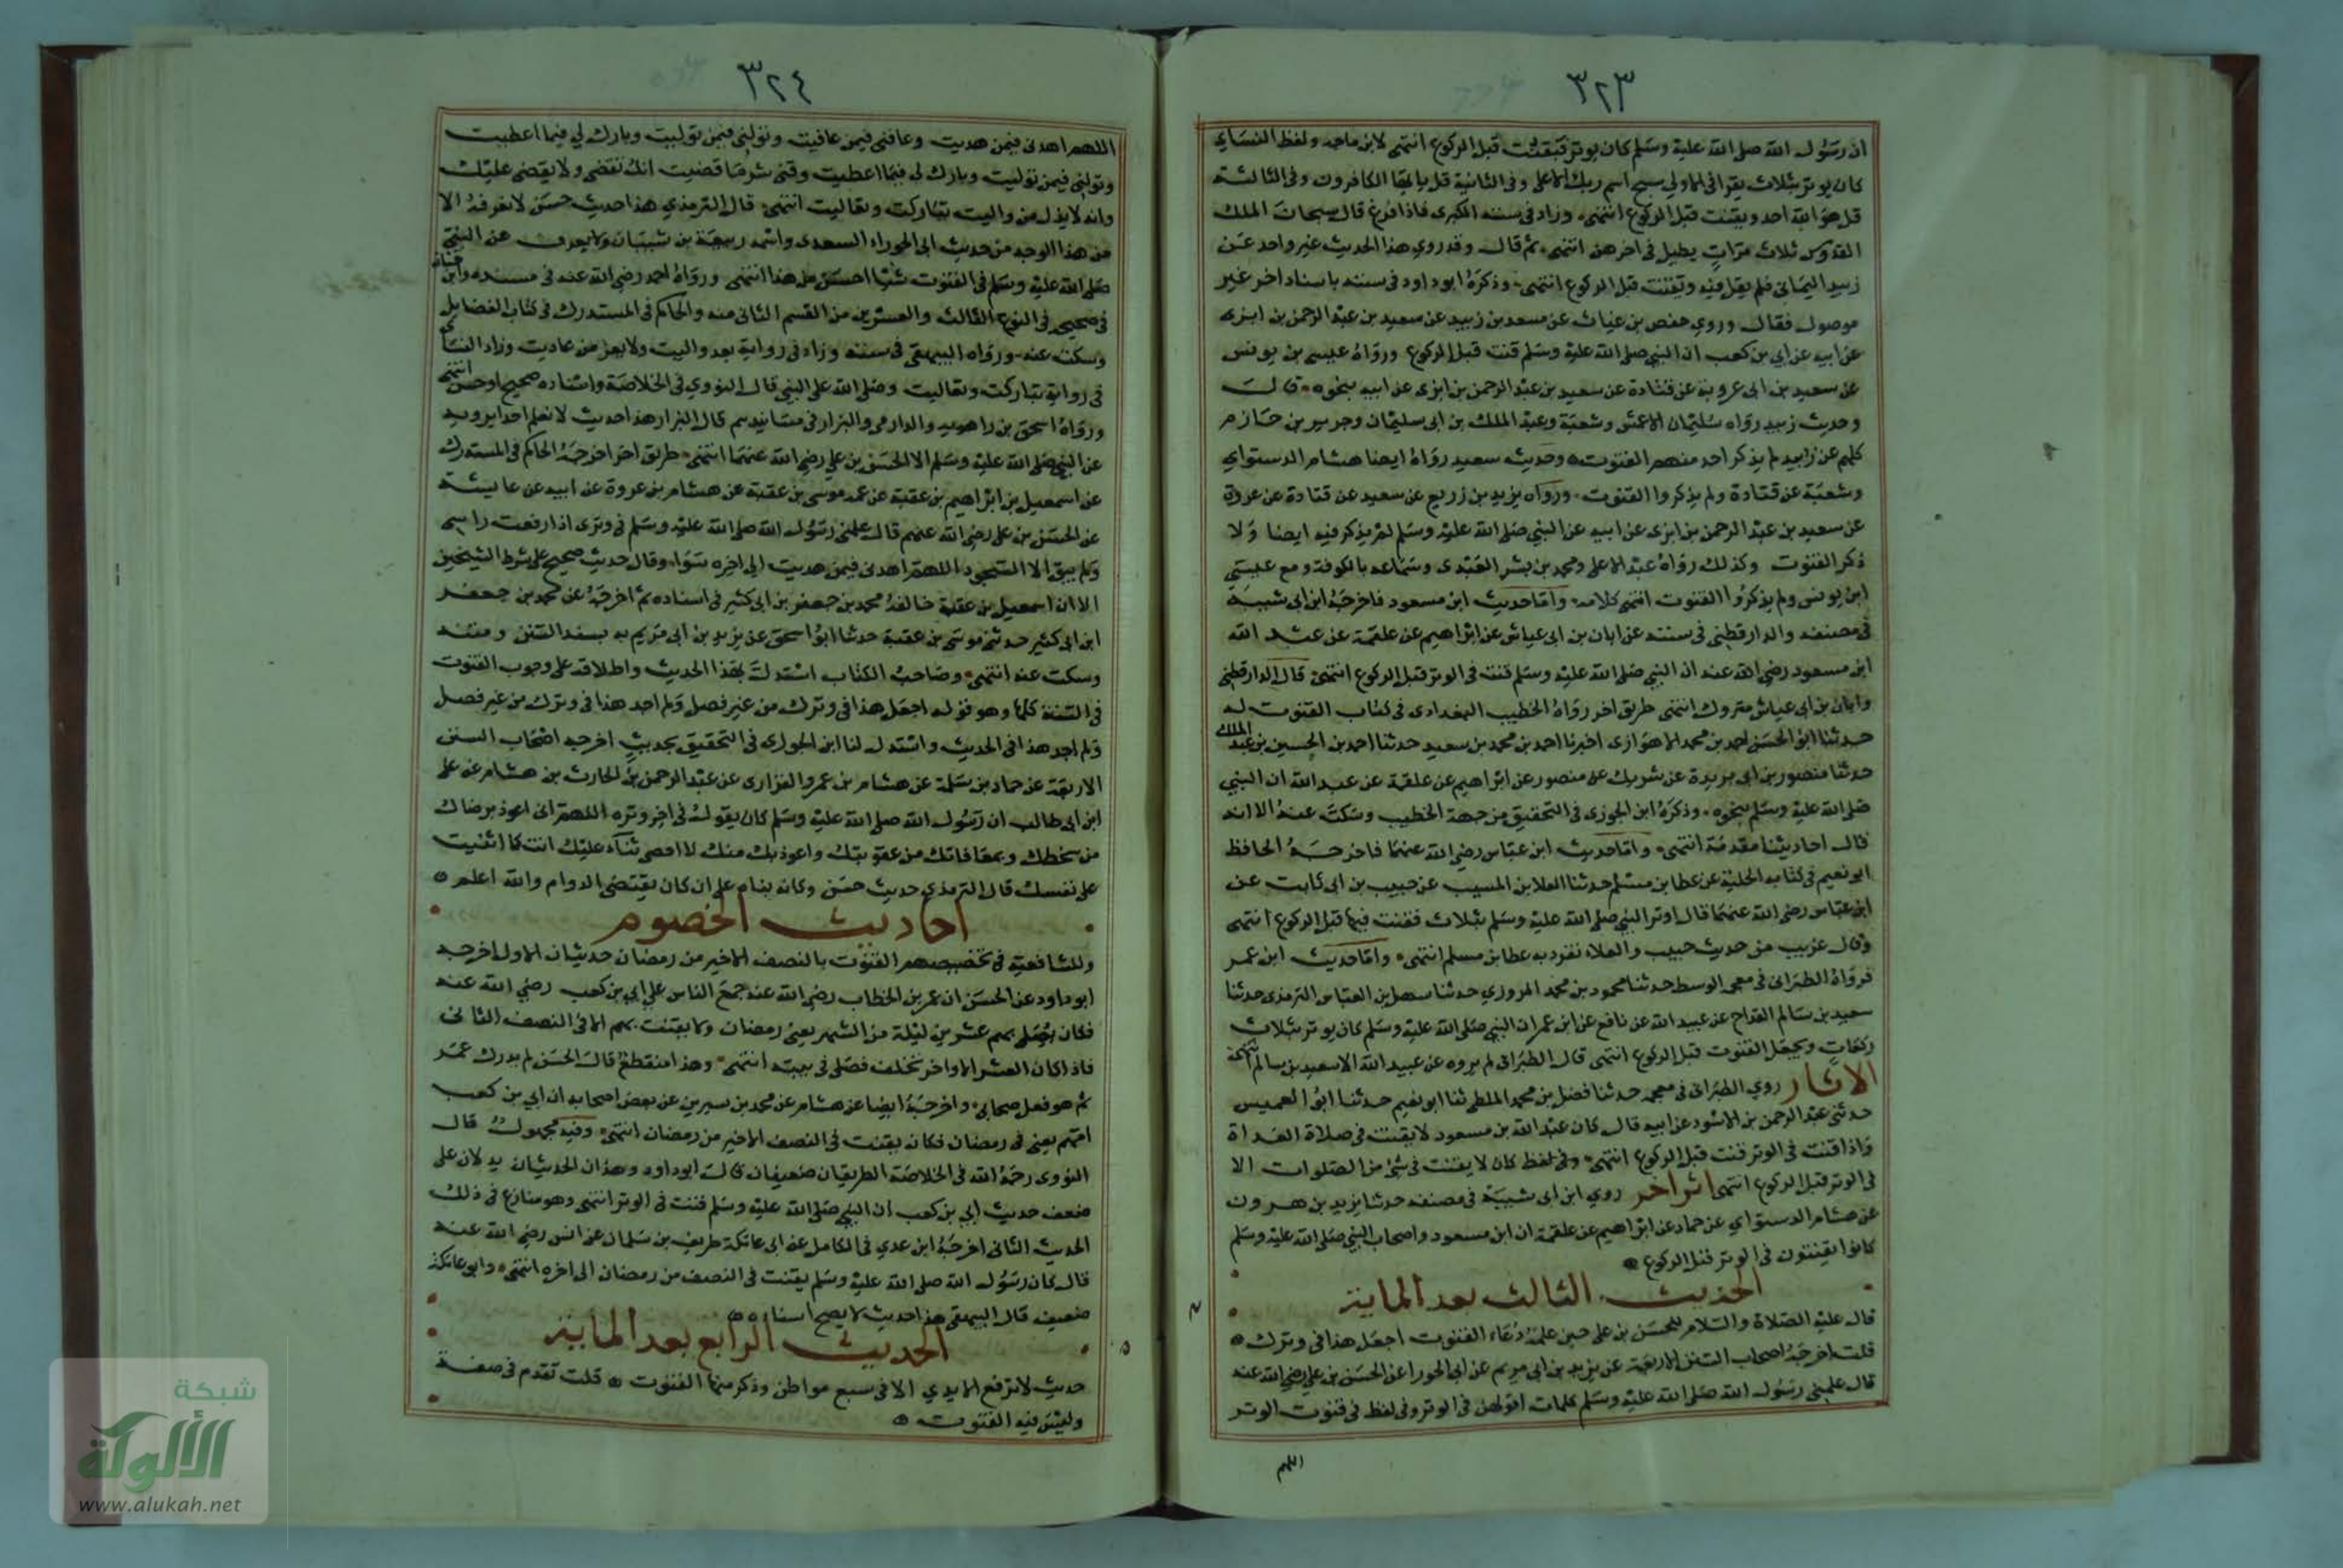 ٣٢٣
ان رسول الله صلى الله عليه وسلم كان يوتر فيقنت قبل الركوع انتهى لابن ماجه ولفظ النسائي
كان يوتر بثلاث يقرا في الاولى سبح اسم ربك الاعلى وفي الثانية قل يا ايها الكافرون وفي الثالثة
قل هو الله احد ويقنت قبل الركوع انتهى وزاد في سننه الكبرى فاذا فرغ قال سبحان الملك
القدوس ثلاث مرات يطيل في اخرهن انتهى ثم قال وقد روي هذا الحديث غير واحد عن
زبيد اليماني فلم يقل فيه ويقنت قبل الركوع انتهى وذكره ابو داود في سننه باسناد اخر غير
موصول فقال وروي حفص بن غياث عن مسعر بن زبيد عن سعيد بن عبد الرحمن بن ابزى
عن ابيه عن ابي بن كعب ان النبي صلى الله عليه وسلم قنت قبل الركوع ورواه عيسى بن يونس
عن سعيد بن ابى عروبة عن قتادة عن سعيد بن عبد الرحمن بن ابزى عن ابيه بنحوه قال
وحديث زبيد رواه سليمان الاعمش وشعبة وعبد الملك بن ابى سليمان وجرير بن حازم
كلهم عن زبيد لم يذكر احد منهم القنوت وحديث سعيد رواه ايضا هشام الدستواي
وشعبة عن قتادة ولم يذكروا القنوت ورواه يزيد بن زريع عن سعيد عن قتادة عن عروة
عن سعيد بن عبد الرحمن بن ابزى عن ابيه عن النبي صلى الله عليه وسلم لم يذكر فيه ايضا ولا
ذكر القنوت وكذلك رواه عبد الاعلى ومحمد بن بشر العبدى وسماعه بالكوفة مع عيسى
ابن يونس ولم يذكروا القنوت انتهى كلامه واما حديث ابن مسعود فاخرجه ابن ابى شيبة
في مصنفه والدارقطني في سننه عن ابان بن ابى عياش عن ابراهيم عن علقمة عن عبد الله
ابن مسعود رضي الله عنه ان النبي صلى الله عليه وسلم قنت في الوتر قبل الركوع انتهى قال الدارقطني
وابان بن ابى عياش متروك انتهى طريق اخر رواه الخطيب البغدادى في كتاب القنوت له
حدثنا ابو الحسن احمد بن محمد الاهوازى اخبرنا احمد بن محمد بن سعيد حدثنا احمد بن الحسين بن عبد الملك
حدثنا منصور بن ابى بريدة عن شريك عن منصور عن ابراهيم عن علقمة عن عبد الله ان النبي
صلى الله عليه وسلم بنحوه وذكره ابن الجوزى في التحقيق من جهة الخطيب وسكت عنه الا انه
قال احاديثنا مقدمة انتهى واما حديث ابن عباس رضي الله عنهما فاخرجه الحافظ
ابو نعيم في كتابه الحلية عن عطا بن مسلم حدثنا العلا بن المسيب عن حبيب بن ابى ثابت عن
ابن عباس رضي الله عنهما قال اوتر النبي صلى الله عليه وسلم بثلاث فقنت فيها قبل الركوع انتهى
وقال غريب من حديث حبيب والعلاء تفرد به عطا بن مسلم انتهى واما حديث ابن عمر
فرواه الطبرانى في معجمه الوسط حدثنا محمود بن محمد المروزي حدثنا سهل بن العباس الترمذى حدثنا
سعيد بن سالم القداح عن عبيد الله عن نافع عن ابن عمر ان النبي صلى الله عليه وسلم كان يوتر بثلاث
ركعات ويجعل القنوت قبل الركوع انتهى قال الطبرانى لم يروه عن عبيد الله الا سعيد بن سالم انتهى
الاثار روي الطبرانى في معجمه حدثنا فضل بن محمد الملطى ثنا ابو نعيم حدثنا ابو العميس
حدثني عبد الرحمن بن الاسود عن ابيه قال كان عبد الله بن مسعود لا يقنت في صلاة الغداة
واذا قنت في الوتر قنت قبل الركوع انتهى وفي لفظ كان لا يقنت في شئ من الصلوات الا
في الوتر قبل الركوع انتهى اثر اخر روي ابن ابى شيبة في مصنفه حدثنا يزيد بن هرون
عن هشام الدستواي عن حماد عن ابراهيم عن علقمة ان ابن مسعود واصحاب النبي صلى الله عليه وسلم
كانوا يقنتون في الوتر قبل الركوع
الحديث الثالث بعد الماية
قال عليه الصلاة والسلام للحسن بن على حين علمه دعاء القنوت اجعل هذا فى وترك
قلت اخرجه اصحاب السنن الاربعة عن يزيد بن ابى مريم عن ابى الحورا عن الحسن بن علي رضي الله عنه
قال علمني رسول الله صلى الله عليه وسلم كلمات اقولهن في الوتر وفى لفظ في قنوت الوتر
اللهم
٣٢٤
اللهم اهدنى فيمن هديت وعافني فيمن عافيت وتولني فيمن توليت وبارك لي فيما اعطيت
وتولني فيمن توليت وبارك لى فيما اعطيت وقني شر ما قضيت انك تقضى ولا يقضى عليك
وانه لا يذل من واليت تباركت وتعاليت انتهى قال الترمذي هذا حديث حسن لا نعرفه الا
من هذا الوجه من حديث ابى الحوراء السعدى واسمه ربيعة بن شيبان ولا يعرف عن النبي
صلى الله عليه وسلم في القنوت شيا احسن من هذا انتهى ورواه احمد رضي الله عنه في مسنده وابن حبان
في صحيحه في النوع الثالث والعشرين من القسم الثانى منه والحاكم في المستدرك في كتاب الفضايل
وسكت عنه ورواه البيهقى في سننه وزاد في رواية بعد واليت ولا يعز من عاديت وزاد النسائي
في رواية تباركت وتعاليت وصلى الله على النبي قال النووي في الخلاصة واسناده صحيح او حسن انتهى
ورواه اسحق بن راهويه والدارمى والبزار في مسانيدهم قال البزار هذا حديث لا نعلم احدا يرويه
عن النبي صلى الله عليه وسلم الا الحسن بن علي رضي الله عنهما انتهى طريق اخر اخرجه الحاكم في المستدرك
عن اسمعيل بن ابراهيم بن عقبة عن عمه موسى بن عقبة عن هشام بن عروة عن ابيه عن عايشة
عن الحسن بن علي رضي الله عنهم قال علمني رسول الله صلى الله عليه وسلم في وترى اذا رفعت راسي
ولم يبق الا السجود اللهم اهدنى فيمن هديت الى اخره سواء وقال حديث صحيح على شرط الشيخين
الا ان اسمعيل بن عقبة خالفه محمد بن جعفر بن ابى كثير في اسناده ثم اخرجه عن محمد بن جعفر
ابن ابى كثير حدثني موسى بن عقبة حدثنا ابو اسحق عن يزيد بن ابى مريم به بسند السنن ومتنه
وسكت عنه انتهى وصاحب الكتاب استدل بهذا الحديث واطلاقه على وجوب القنوت
في السنة كلها وهو قوله اجعل هذا في وترك من غير فصل ولم اجد هذا في وترك من غير فصل
ولم اجد هذا في الحديث واستدل لنا ابن الجوزى في التحقيق بحديث اخرجه اصحاب السنن
الاربعة عن حماد بن سلمة عن هشام بن عمرو الفزارى عن عبد الرحمن بن الحارث بن هشام عن على
ابن ابى طالب ان رسول الله صلى الله عليه وسلم كان يقول في اخر وتره اللهم انى اعوذ برضاك
من سخطك وبمعافاتك من عقوبتك واعوذ بك منك لا احصى ثناء عليك انت كما اثنيت
على نفسك قال الترمذي حديث حسن وكانه بناه على ان كان يقتضى الدوام والله اعلم
احاديث الخصوم
وللشافعية في تخصيصهم القنوت بالنصف الاخير من رمضان حديثان الاول اخرجه
ابو داود عن الحسن ان عمر بن الخطاب رضي الله عنه جمع الناس على ابي بن كعب رضي الله عنه
فكان يصلى بهم عشرين ليلة من الشهر يعنى رمضان ولا يقنت بهم الا في النصف الثانى
فاذا كان العشر الاواخر تخلف فصلى في بيته انتهى وهذا منقطع قال الحسن لم يدرك عمر
ثم هو فعل صحابى واخرجه ايضا عن هشام عن محمد بن سيرين عن بعض اصحابه ان ابي بن كعب
امهم يعنى في رمضان فكان يقنت في النصف الاخير من رمضان انتهى وفيه مجهول قال
النووى رحمه الله في الخلاصة الطريقان ضعيفان قال ابو داود وهذان الحديثان يدلان على
ضعف حديث ابي بن كعب ان النبي صلى الله عليه وسلم قنت في الوتر انتهى وهو منازع في ذلك
الحديث الثانى اخرجه ابن عدي في الكامل عن ابى عاتكة طريف بن سلمان عن انس رضي الله عنه
قال كان رسول الله صلى الله عليه وسلم يقنت في النصف من رمضان الى اخره انتهى وابو عاتكة
ضعيف قال البيهقى هذا حديث لا يصح اسناده
الحديث الرابع بعد الماية
حديث لا ترفع الايدي الا في سبع مواطن وذكر منها القنوت قلت تقدم في صفة
وليس فيه القنوت
شبكة
الألوكة
www.alukah.net